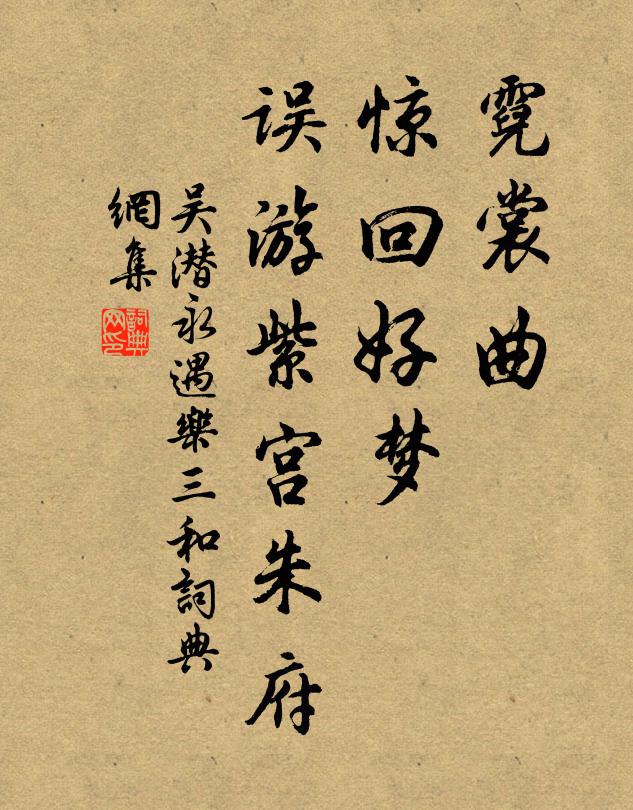 霓裳曲
惊回好梦
误游紫宫朱府
吴潜永遇樂三和詞典
網集
詞典网印